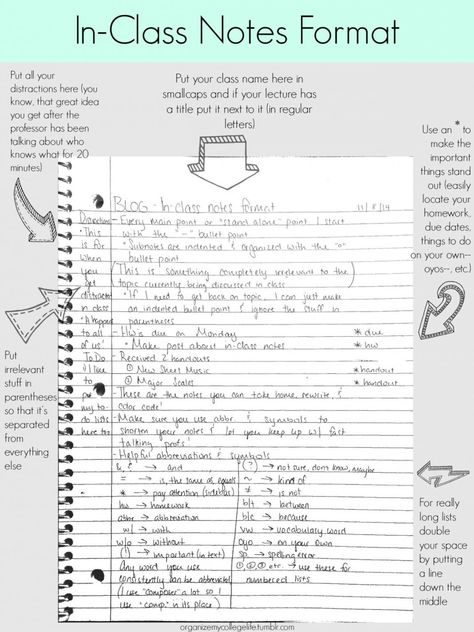 In-Class Notes Format
Put all your
distractions here (you
know, that great idea
you get after the
professor has been
talking about who
knows what for 20
minutes)
Put your class name here in
smallcaps and if your lecture has
a title put it next to it (in regular
letters)
Use an *to
make the
important
things stand
out (easily
locate your
homework,
due dates,
things to do
on your own--
oyos--, etc.)
Put
irrelevant
stuff in
parentheses
so that it's
separated
from
everything
else
For really
long lists
double
your space
by putting
a line
down the
middle
BLOG - In-class notes format 11/8/14
Distractions
•This
is for
when
you
get
distracted
in class
•It happens
to all
of us!
To Do
I like
to
put
my to-
do lists
here too
- Every main point or "stand alone" point I start
with the "-" bullet point
•Subnotes are indented & organized with the "o"
bullet point
(This is something completely irrelevant to the
topic currently being discussed in class)
•If I need to get back on topic, I can just make
an indented bullet point & ignore the stuff in
parentheses
- HW's due on Monday *due
•Make post about in-class notes *hw
- Received 2 handouts
① New Sheet Music *handout
② Major Scales *handout
- These are the notes you can take home, rewrite, &
color code!
- Make sure you use abbr. & symbols to
shorten your notes & let you keep up w/ fast
talking profs!
- Helpful abbreviations & symbols
&, + → and
= → is, the same as, equals
* → pay attention (sidebar)
hw → homework
abbr → abbreviation
w/ → with
w/o → without
(!) → important (in text)
Any word you use
consistently can be abbreviated
(I use "composer" a lot so I
use "comp." in its place)
(?) → not sure, don't know, maybe
~ → kind of
≠ → is not
b/t → between
b/c → because
vw → vocabulary word
oyo → on your own
sp. → spelling error
①, ②, etc. → use these for
numbered lists
organizemycollegelife.tumblr.com